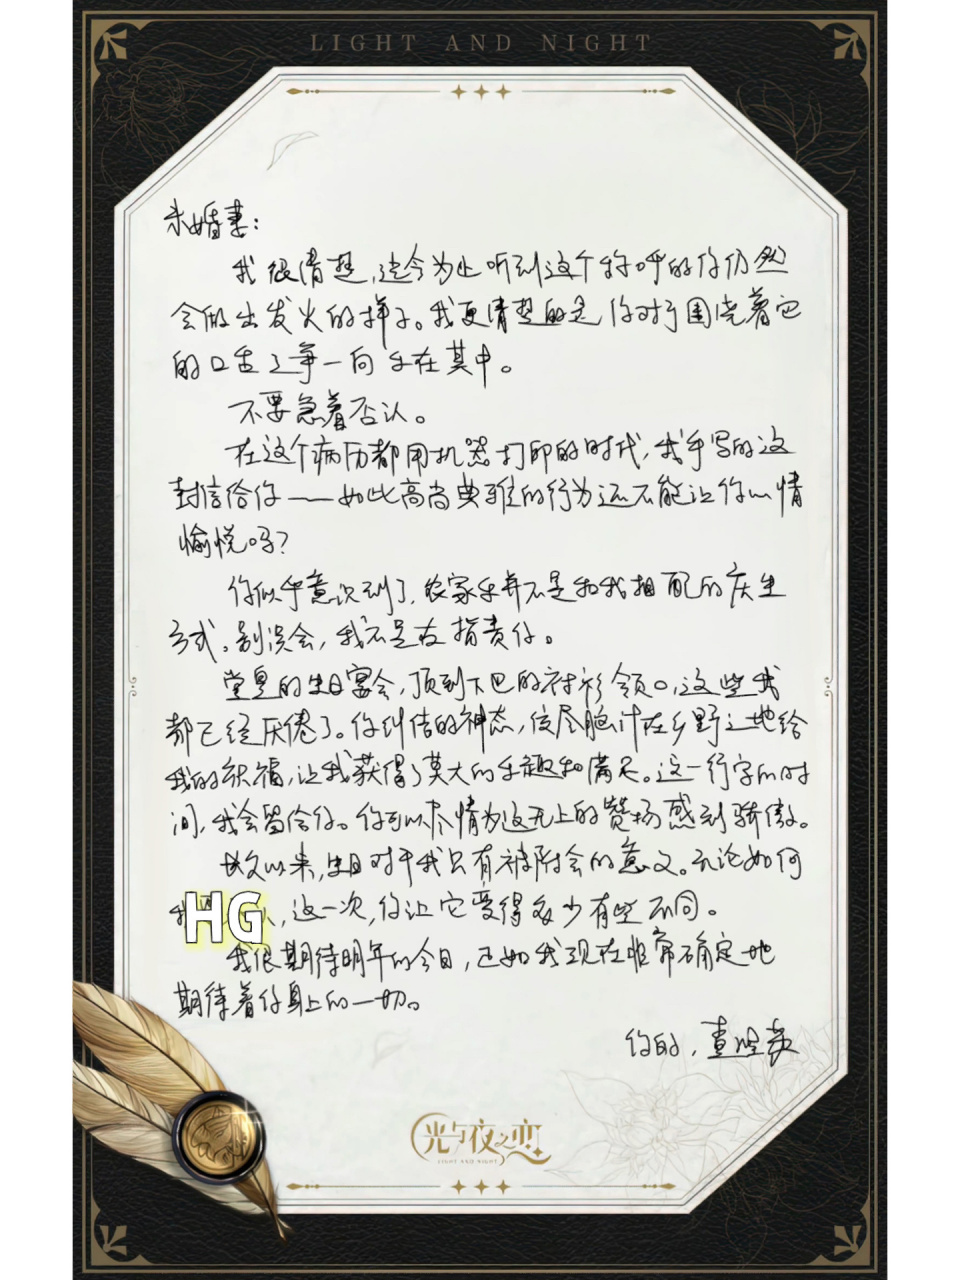 LIGHT AND NIGHT
未婚妻：
我很清楚，迄今为止听到这个称呼的你仍然
会做出发火的样子。我更清楚的是你对于围绕着它
的口舌之争一向乐在其中。
不要急着否认。
在这个病历都用机器打印的时代，我手写的这
封信给你——如此高尚典雅的行为还不能让你心情
愉悦吗？
你似乎意识到了，农家乐并不是和我相配的庆生
方式。别误会，我不是在指责你。
堂皇的生日宴会，顶到下巴的衬衫领口，这些我
都已经厌倦了。你纠结的神态，使尽脑汁在乡野之地给
我的祝福，让我获得了莫大的乐趣和满足。这一行字的时
间，我会留给你。你可以尽情为这无上的赞扬感到骄傲。
长久以来，生日对于我只有被附会的意义。无论如何
HG
我，这一次，你让它变得多少有些不同。
我很期待明年的今日，正如我现在非常确定地
期待着你身上的一切。
你的，查理苏
光与夜之恋
LIGHT AND NIGHT